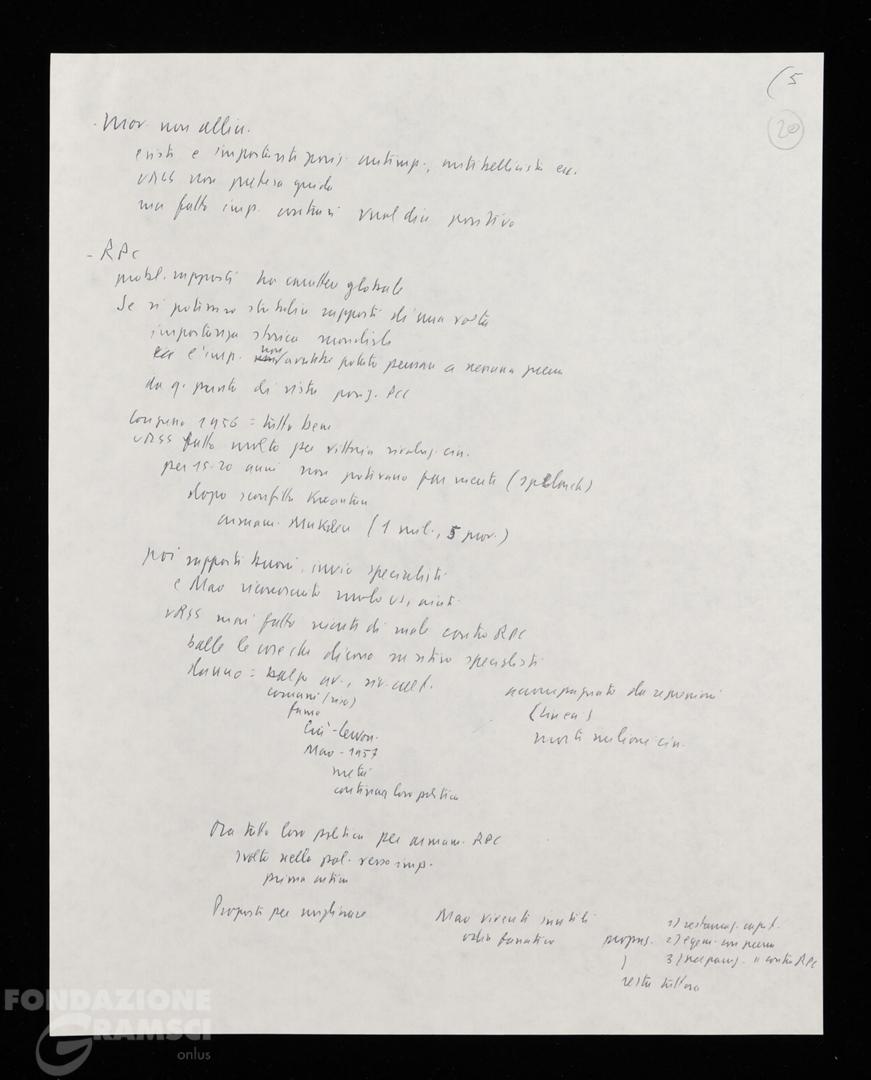 (5
20
- Mov. non allin.
esiste e importanti posiz. antimp., antibellicista ecc.
URSS non pretesa guida
ma fatto imp. contrari vuol dire positivo
- RPC
probl. rapporti ha carattere globale
Se si potessero stabilire rapporti di una volta
importanza storica mondiale
l'imp. non avrebbe potuto pensare a nessuna guerra
da q. punto di vista posiz. PCC
Congresso 1956 = tutto bene
URSS fatto molto per vittoria rivoluz. cin.
per 15-20 anni non potevano far niente
dopo sconfitta Kwantun
armam. Mukden (1 mil., 5 prov.)
poi rapporti buoni, invio specialisti
e Mao riconosciuto aiuti
URSS mai fatto niente di male contro RPC
balle le cose che dicono su ritiro specialisti
danno = balzo av., riv. cult.
comuni (riso)
fame
Ciu-Lewon.
Mao - 1957
metà
continua loro politica
accompagnato da repressioni
(linea)
morti milioni cin.
Ora tutta loro politica per armam. RPC
svolta nella pol. verso imp.
prima anticin
Proposte per migliorare
Mao viventi inutili
odio fanatico
propos.
1) restauraz. capit.
2) egem. con guerra
3) contro RPC
resta tuttora
FONDAZIONE
GRAMSCI
onlus